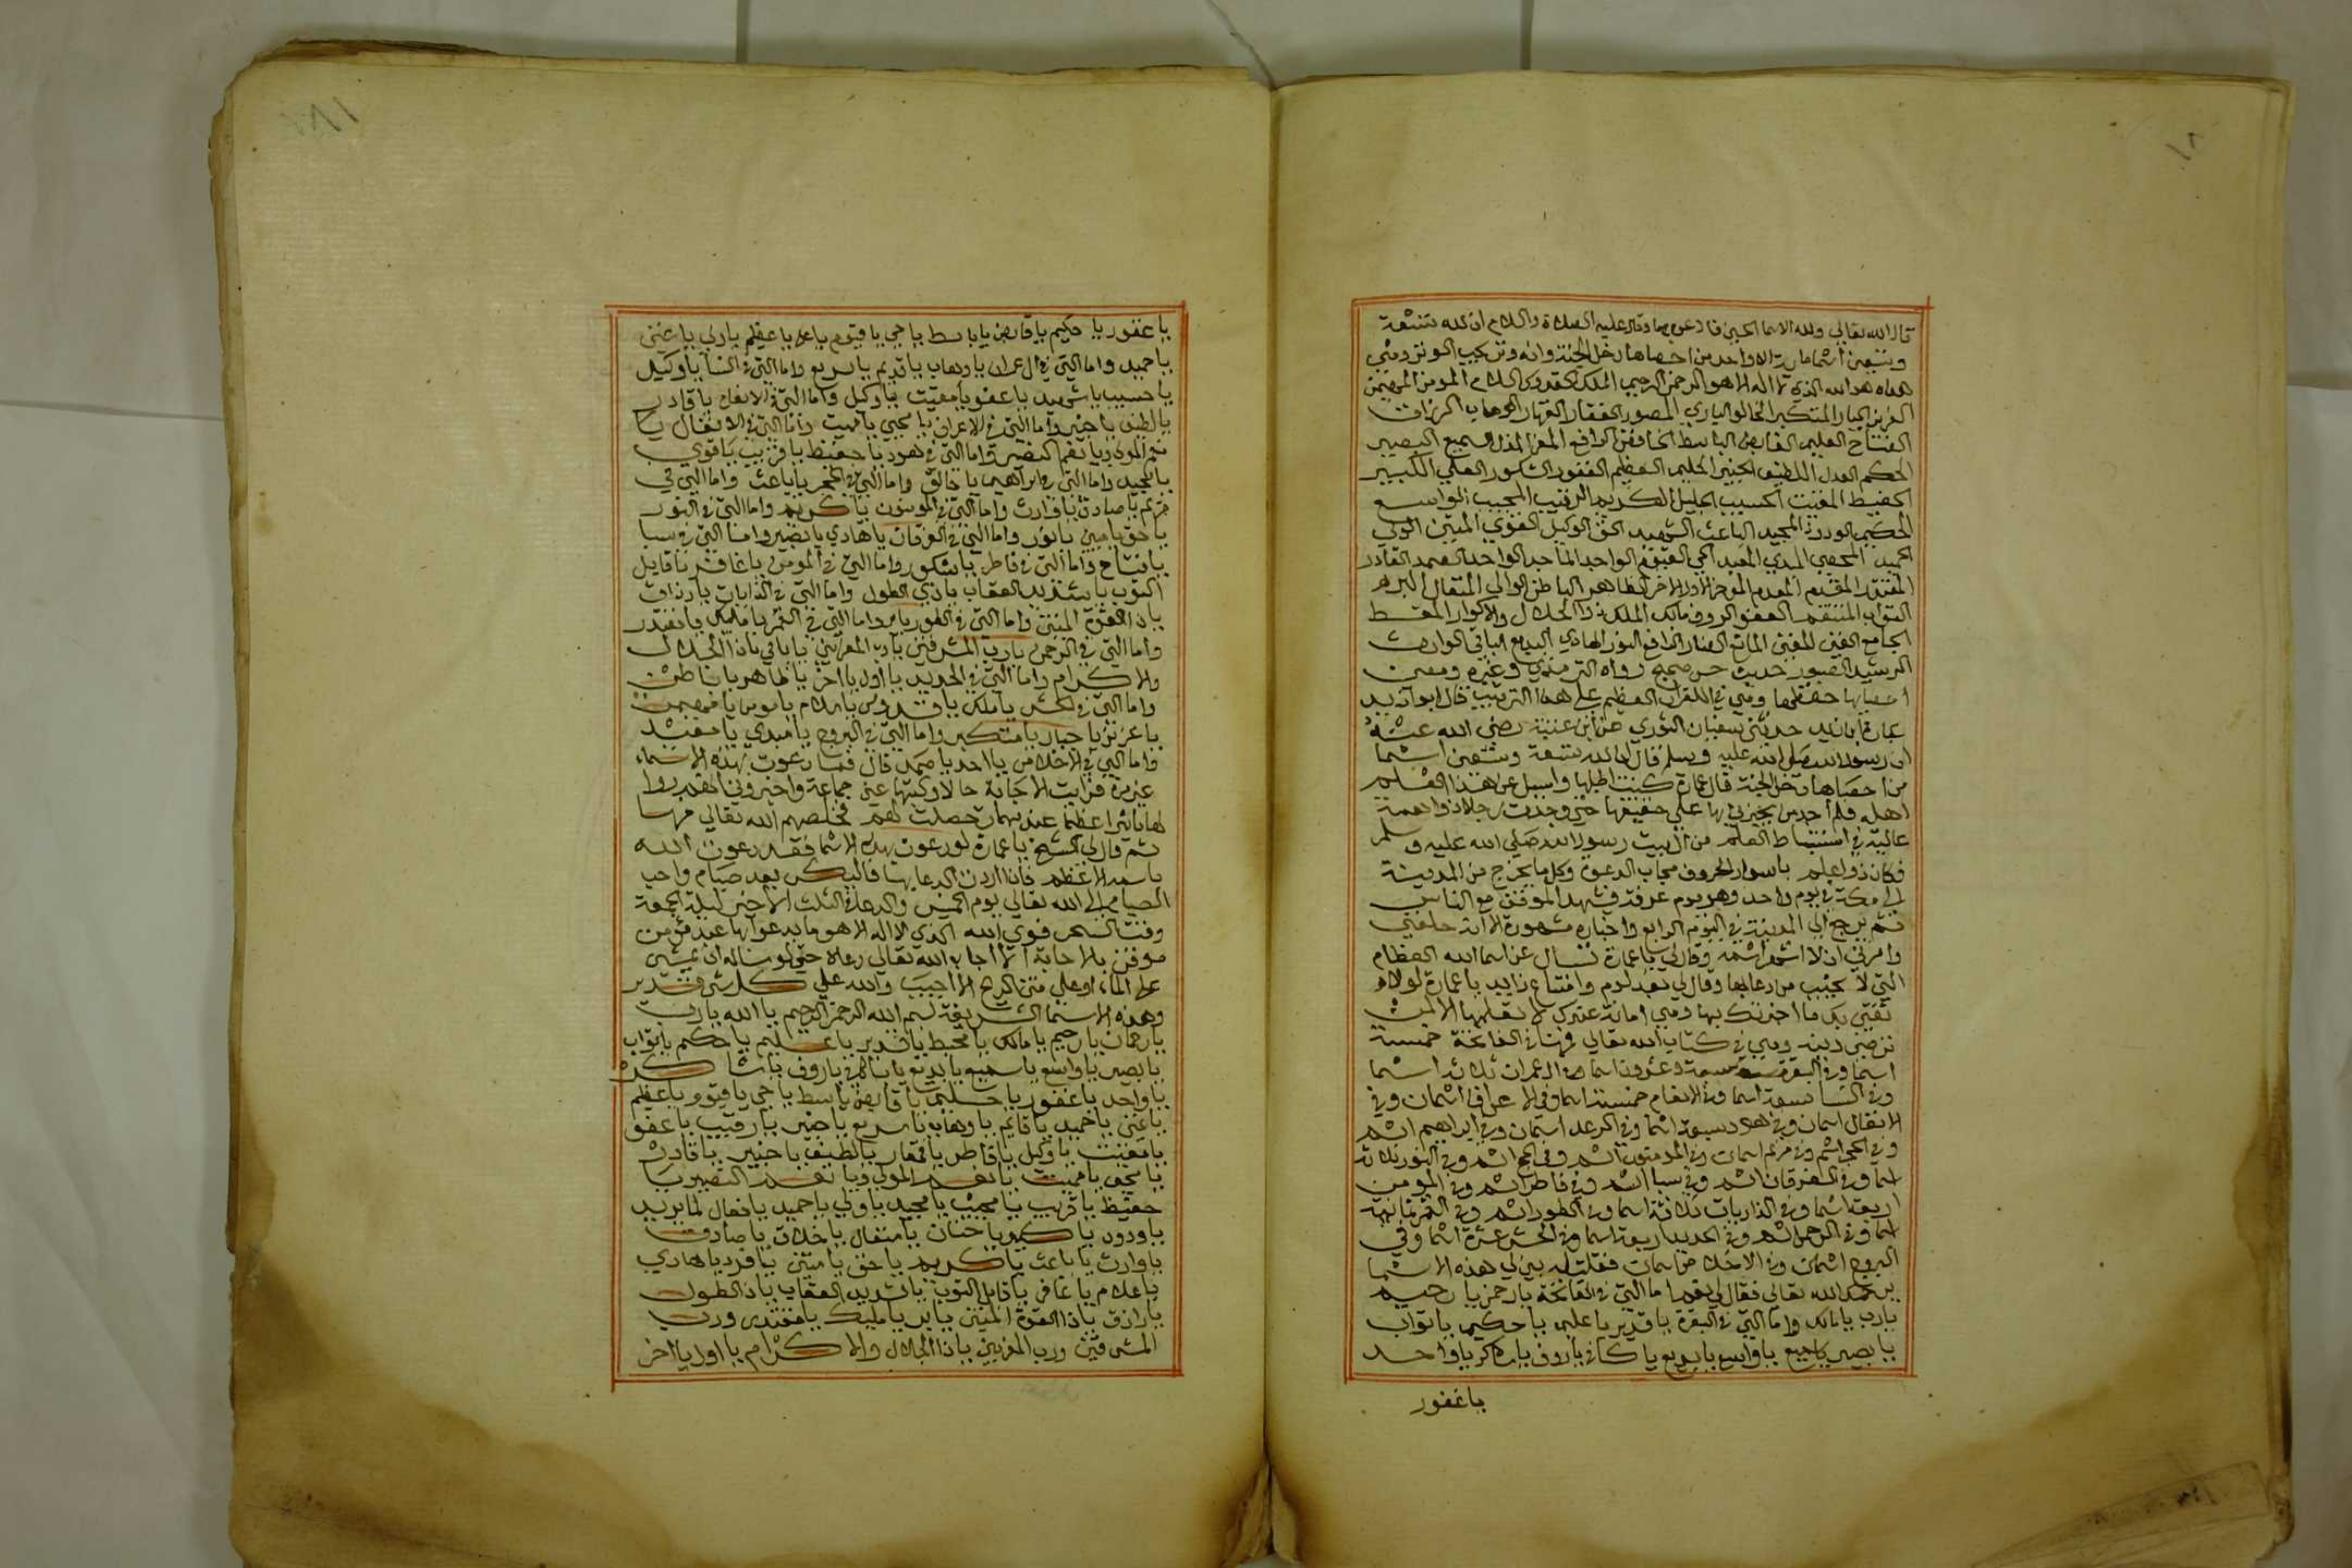 قال الله تعالى ولله الاسما الحسنى فادعوه بها وقال عليه الصلاة والسلام ان لله تسعة
وتسعين اسما ماية الا واحد من احصاها دخل الجنة وانه وتر يحب الوتر وهي
هذه هو الله الذي لا اله الا هو الرحمن الرحيم الملك القدوس السلام المومن المهيمن
العزيز الجبار المتكبر الخالق الباري المصور الغفار القهار الوهاب الرزاق
الفتاح العليم القابض الباسط الخافض الرافع المعز المذل السميع البصير
الحكم العدل اللطيف الخبير الحليم العظيم الغفور الشكور العلي الكبير
الحفيظ المقيت الحسيب الجليل الكريم الرقيب المجيب الواسع
الحكيم الودود المجيد الباعث الشهيد الحق الوكيل القوي المتين الولي
الحميد المحصي المبدي المعيد الحي القيوم الواجد الماجد الواحد الصمد القادر
المقتدر المقدم المؤخر الاول الاخر الظاهر الباطن الوالي المتعال البر
التواب المنتقم العفو الروف مالك الملك ذو الجلال والاكرام المقسط
الجامع الغني المغني المانع الضار النافع النور الهادي البديع الباقي الوارث
الرشيد الصبور حديث حسن صحيح رواه الترمذي وغيره ومعنى
احصاها حفظها وهي في القران العظيم على هذا الترتيب قال ابو زيد
عمارة بن زيد حدثني سفيان الثوري عن ابن عيينة رضي الله عنه
ان رسول الله صلى الله عليه وسلم قال ان لله تسعة وتسعين اسما
من احصاها دخل الجنة قال عمارة كنت اطلبها واسيل عن هذا العلم
اهله فلم اجد من يخبرني بها على حقيقتها حتى وجدت رجلا ذو اهمة
عالية في استنباط العلم من ال بيت رسول الله صلى الله عليه وسلم
فكان ذو اعلم باسرار الحروف مجاب الدعوة وكل ما يخرج من المدينة
الى مكة في يوم واحد وهو يوم عرفة فيشهد الموقف مع الناس
ثم يرجع الى المدينة في اليوم الرابع واخباره مشهورة الا انه حلفني
وامرني ان لا اشهر اسمه وقال لي يا عمارة تسال عن اسما الله العظام
التي لا يخيب من دعا بها وقال لي بعد لوم وامتناع زايد يا عمارة لولا
ثقتي بك ما اخبرتك بها وهي امانة عندك لا تعلمها الا لمن
ترضى دينه وهي في كتاب الله تعالى فمنها في الفاتحة خمسة
اسما وفي البقرة ستة وعشرون اسما وفي ال عمران ثلاثة اسما
وفي النسا سبعة اسما وفي الانعام خمسة اسما وفي الاعراف اسمان وفي
الانفال اسمان وفي هود سبعة اسما وفي الرعد اسمان وفي ابراهيم اسم
وفي الحجر اسم وفي مريم اسمان وفي المومنون اسم وفي الحج اسم وفي النور ثلاثة
اسما وفي الفرقان اسم وفي سبا اسم وفي فاطر اسم وفي المومن
اربعة اسما وفي الذاريات ثلاثة اسما وفي الطور اسم وفي القمر
اسما وفي الرحمن اسم وفي الحديد اربعة اسما وفي الحشر عشرة اسما وفي
البروج اسمان وفي الاخلاص اسمان فقلت له بين لي هذه الاسما
يرحمك الله تعالى فقال لي نعم اما التي في الفاتحة يا رحمن يا رحيم
يا رب يا مالك واما التي في البقرة يا قدير يا عليم يا حكيم يا تواب
يا بصير يا سميع يا واسع يا بديع يا كافي يا روف يا شاكر يا واحد
يا غفور
يا غفور يا حكيم يا قابض يا باسط يا حي يا قيوم يا علي يا عظيم يا ولي يا غني
يا حميد واما التي في ال عمران يا وهاب يا قديم يا سريع واما التي في النسا يا وكيل
يا حسيب يا شهيد يا عفو يا مقيت يا وكيل واما التي في الانعام يا قادر
يا لطيف يا خبير واما التي في الاعراف يا محيي يا مميت واما التي في الانفال يا
نعم المولى ويا نعم النصير واما التي في هود يا حفيظ يا قريب يا قوي
يا مجيد واما التي في ابراهيم يا خالق واما التي في الحجر يا باعث واما التي في
مريم يا صادق يا وارث واما التي في المومنون يا كريم واما التي في النور
يا حق يا مبين يا نور واما التي في الفرقان يا هادي يا نصير واما التي في سبا
يا فتاح واما التي في فاطر يا شكور واما التي في المومن يا غافر يا قابل
التوب يا شديد العقاب يا ذي الطول واما التي في الذاريات يا رزاق
يا ذا القوة المتين واما التي في الطور يا بر واما التي في القمر يا مليك يا مقتدر
واما التي في الرحمن يا رب المشرقين يا رب المغربين يا باقي يا ذا الجلال
والاكرام واما التي في الحديد يا اول يا اخر يا ظاهر يا باطن
واما التي في الحشر يا ملك يا قدوس يا سلام يا مومن يا مهيمن
يا عزيز يا جبار يا متكبر واما التي في البروج يا مبدي يا معيد
واما التي في الاخلاص يا احد يا صمد قال فما دعوت بهذه الاسماء
غير مرة فرايت الاجابة حالا وكتبها عني جماعة واخبروني انهم راوا
لها تاثيرا عظيما عند مهمات حصلت لهم فخلصهم الله تعالى منها
ثم قال لي الشيخ يا عمارة لو دعوت بهذه الاسما فقد دعوت الله
باسمه الاعظم فاذا اردت الدعا بها فاليكن بعد صيام واحب
الصيام الى الله تعالى يوم الخميس والدعا في الثلث الاخير ليلة الجمعة
وقت السحر فوالله الذي لا اله الا هو ما يدعو بها عبد مومن
موقن بالاجابة الا اجاب الله تعالى دعاه حتى لو ساله ان يمشي
على الماء او على متن الريح الا اجيب والله على كل شي قدير
وهذه الاسما الشريفة بسم الله الرحمن الرحيم يا الله يا رب
يا رحمان يا رحيم يا مالك يا محيط يا قدير يا عليم يا حكيم يا تواب
يا بصير يا واسع يا سميع يا بديع يا كافي يا روف يا شاكر
يا واحد يا غفور يا حليم يا قابض يا باسط يا حي يا قيوم يا عظيم
يا غني يا حميد يا قايم يا وهاب يا سريع يا خبير يا رقيب يا عفو
يا مقيت يا وكيل يا فاطر يا قهار يا لطيف يا خبير يا قادر
يا محيي يا مميت يا نعم المولى ويا نعم النصير يا
حفيظ يا قريب يا مجيب يا مجيد يا ولي يا حميد يا فعال لما يريد
يا ودود يا كبير يا حنان يا متعال يا خلاق يا صادق
يا وارث يا باعث يا كريم يا حق يا متين يا فرد يا هادي
يا علام يا غافر يا قابل التوب يا شديد العقاب يا ذا الطول
يا رازق يا ذا القوة المتين يا بر يا مليك يا مقتدر ورب
المشرقين ورب المغربين يا ذا الجلال والاكرام يا اول يا اخر